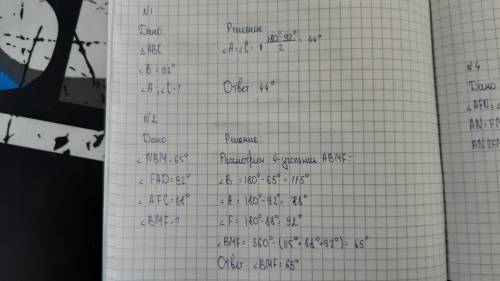 N1
Дано
△ABC
∠B = 92°
∠A; ∠C - ?
Решение
∠A=∠C= (180°-92°)/2 = 44°
Ответ 44°
N2
Дано
∠NBM=65°
∠FAD=92°
∠AFC=88°
∠BMF-?
Решение
Рассмотрим 4-угольник ABMF:
∠B = 180°-65° = 115°
∠A = 180°-92° = 88°
∠F = 180°-88° = 92°
∠BMF = 360°-(115°+88°+92°) = 65°
Ответ ∠BMF = 65°
N4
Дано
∠AFN=∠
AN=FM